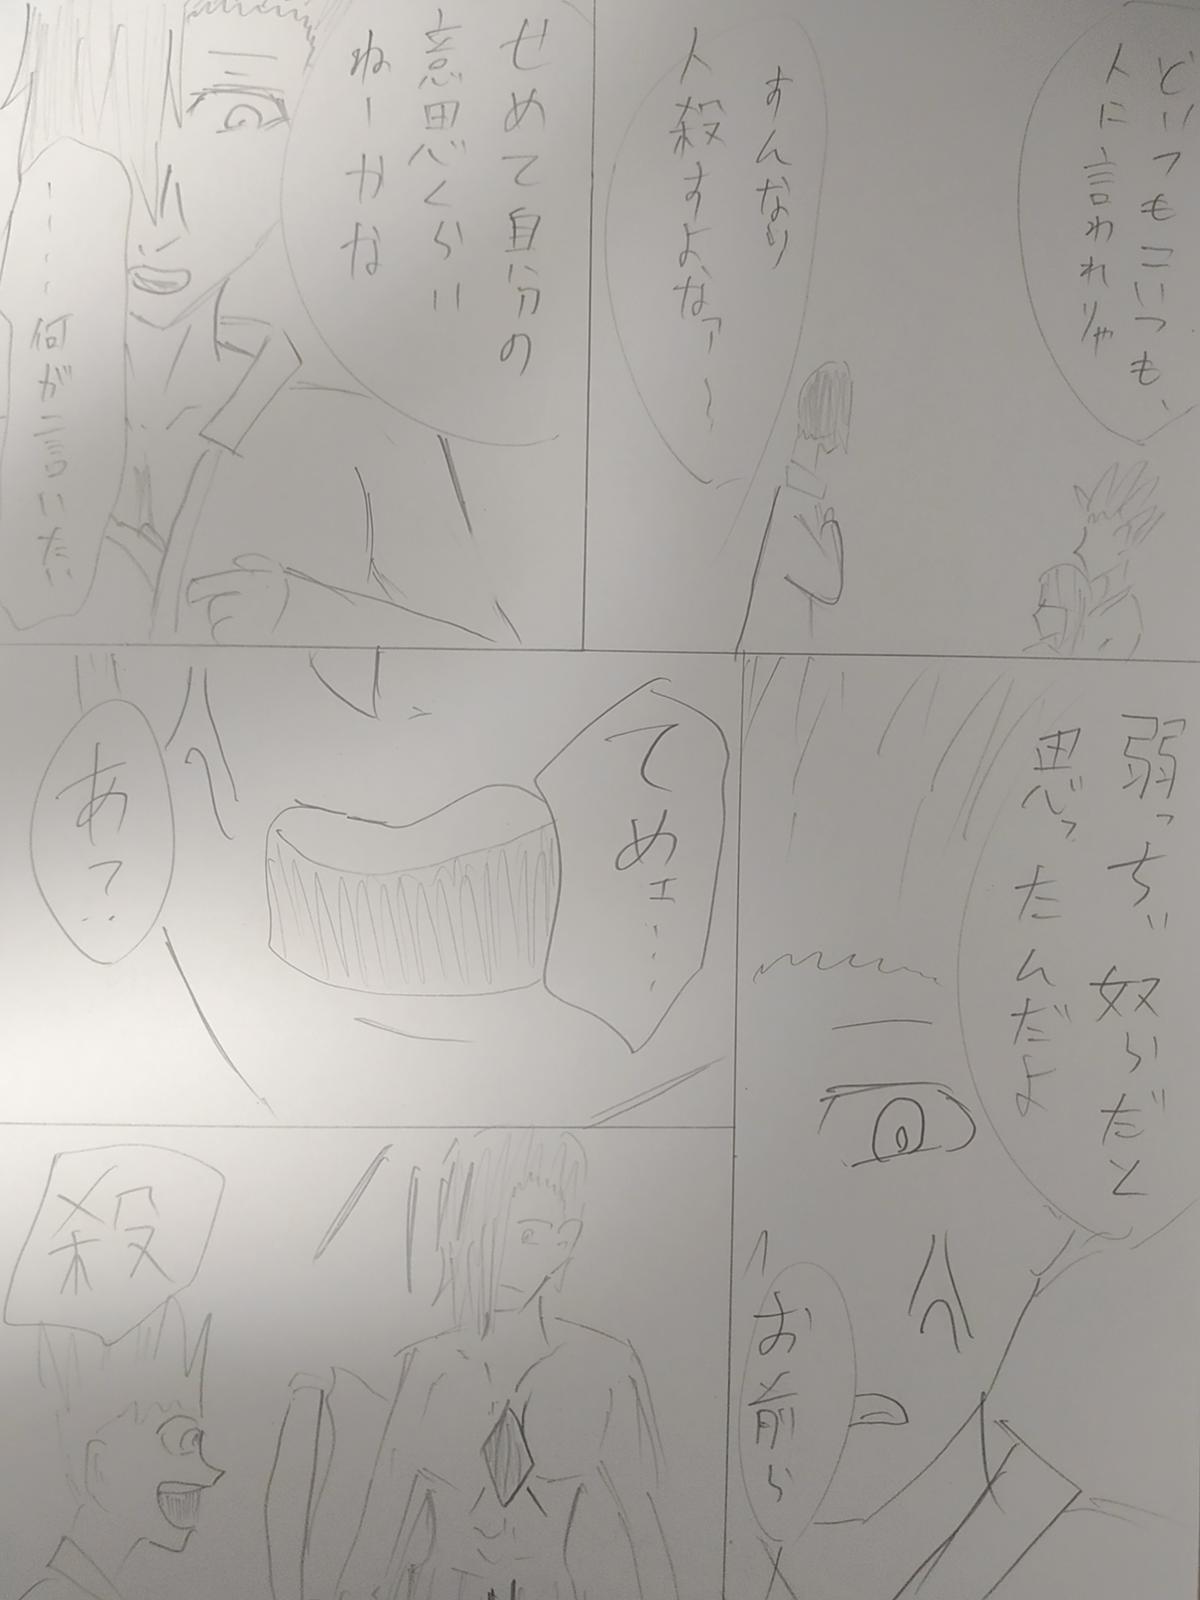 どいつもこいつも、
人に言われりゃ
すんなり
人殺すよなァ～
せめて自分の
意思くらい
ねーかな
……何が言いたい
弱っちい奴らだと
思ったんだよ
お前ら
てめェ……
あ？
殺